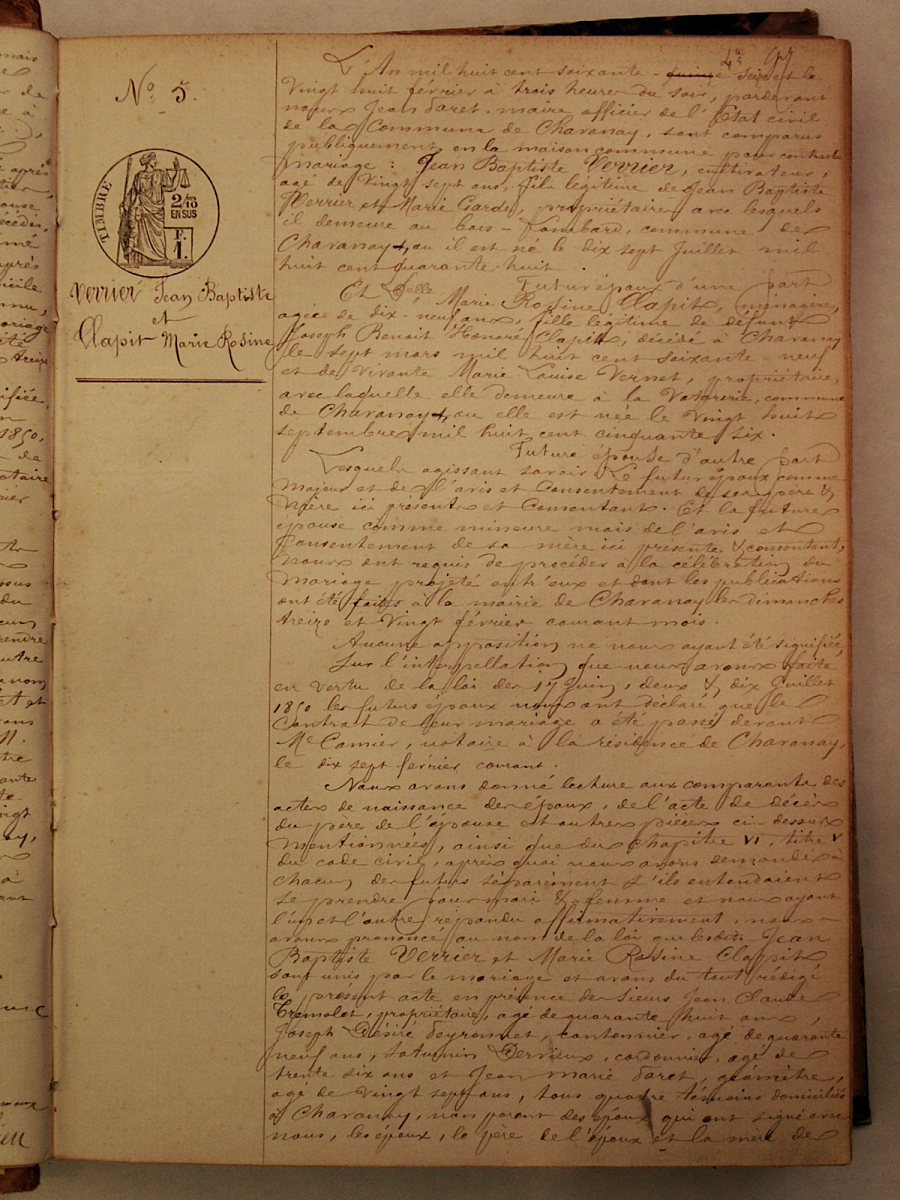 4e 97
N° 5.
TIMBRE
2/10
EN SUS
F.
1.
Verrier Jean Baptiste
et
Clapit Marie Rosine
L'An mil huit cent soixante - quinze seize et le
Vingt huit février à trois heures du soir, pardevant
nous Jean Paret, maire officier de l'Etat civil
de la Commune de Chavanay, sont comparus
publiquement en la maison commune pour contracter
mariage : Jean Baptiste Verrier, cultivateur,
agé de Vingt sept ans, fils légitime de Jean Baptiste
Verrier et Marie Garde, propriétaires avec lesquels
il demeure au bois - Lombard, commune de
Chavanay, ou il est né le dix sept Juillet mil
huit cent quarante huit.
Futur époux d'une part
Et Delle Marie Rosine Clapit, ménagère,
agée de dix-neuf ans, fille légitime de défunt
Joseph Benoit Honoré Clapit, décédé à Chavanay
le sept mars mil huit cent soixante - neuf
et de vivante Marie Louise Vernet, propriétaire,
avec laquelle elle demeure à la Valorerie, commune
de Chavanay, ou elle est née le Vingt huit
septembre mil huit cent cinquante six.
Future épouse d'autre part
Lesquels agissant savoir Le futur époux comme
majeur et de l'avis et Consentement de ses père &
Mère ici présents et Consentant. Et la future
épouse comme mineure mais de l'avis et
Consentement de sa mère ici présente & consentant,
nous ont requis de procéder à la célébration du
Mariage projeté entr'eux et dont les publications
ont été faites à la mairie de Chavanay les dimanches
treize et Vingt février courant mois.
Aucune opposition ne nous ayant été signifiée,
Sur l'interpellation que nous avons faite
en vertu de la loi des 17 Juin, deux & dix Juillet
1850 les futurs époux nous ont déclaré que le
Contrat de leur mariage a été passé devant
Me Camier, notaire à la résidence de Chavanay,
le dix sept février courant.
Nous avons donné lecture aux comparants des
actes de naissance des époux, de l'acte de décès
du père de l'épouse et autres pièces ci-dessus
mentionnées, ainsi que du chapitre VI, titre V
du code civil, après quoi nous avons demandé à
chacun des futurs séparément s'ils entendaient
se prendre pour mari & femme et nous ayant
l'un et l'autre répondu affirmativement, nous
avons prononcé au nom de la loi que lesdits Jean
Baptiste Verrier et Marie Rosine Clappit
sont unis par le mariage et avons du tout rédigé
le présent acte en présence des Sieurs Jean Claude
Tremolet, propriétaire, agé de quarante huit ans,
Joseph Désiré Peyronnet, cantonnier, agé de quarante
neuf ans, Saturnin Dervieux, cordonnier, agé de
trente six ans et Jean Marie Paret, géomètre,
agé de Vingt sept ans, tous quatre témoins domiciliés
à Chavanay, non parent des époux qui ont signé avec
nous, les époux, le père de l'époux et la mère de